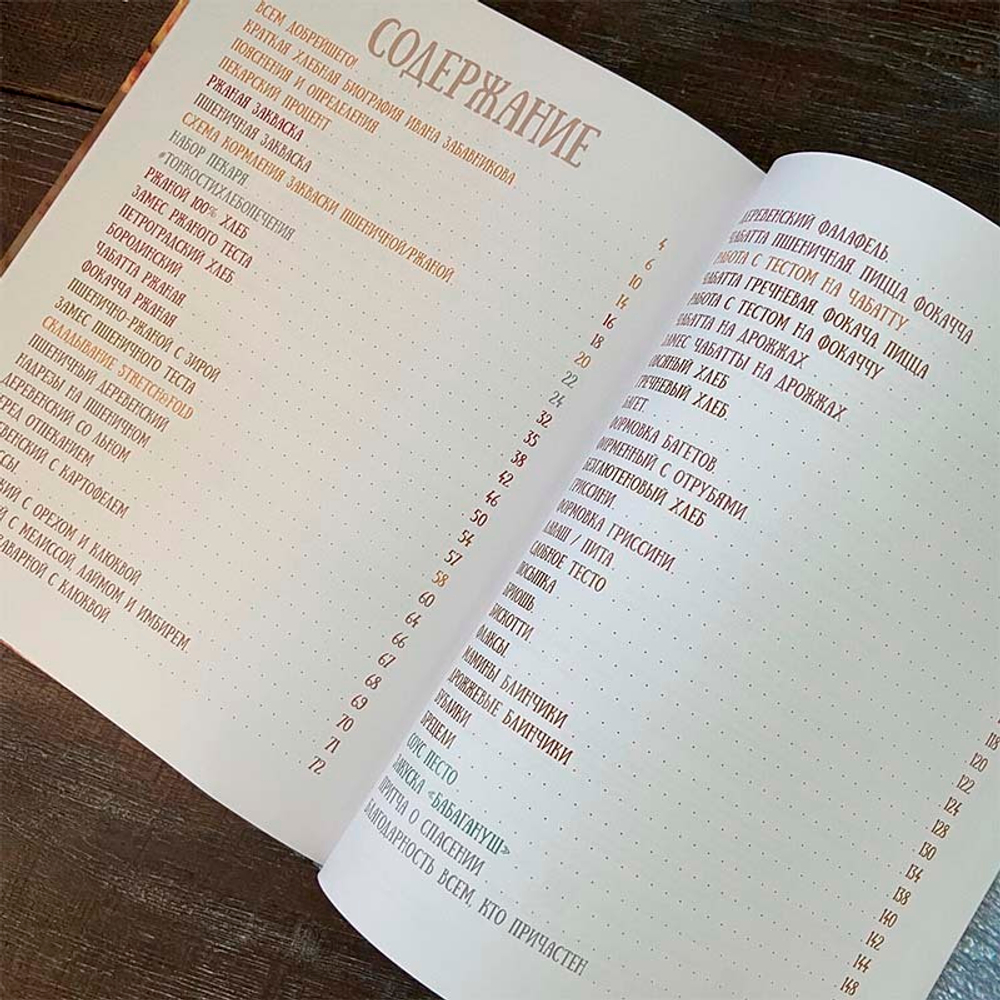 СОДЕРЖАНИЕ
ВСЕМ ДОБРЕЙШЕГО! 4
КРАТКАЯ ХЛЕБНАЯ БИОГРАФИЯ ИВАНА ЗАБАВНИКОВА 6
ПОЯСНЕНИЯ И ОПРЕДЕЛЕНИЯ 10
ПЕКАРСКИЙ ПРОЦЕНТ 14
РЖАНАЯ ЗАКВАСКА 16
ПШЕНИЧНАЯ ЗАКВАСКА 18
СХЕМА КОРМЛЕНИЯ ЗАКВАСКИ ПШЕНИЧНОЙ/РЖАНОЙ 20
НАБОР ПЕКАРЯ 22
#ТОНКОСТИХЛЕБОПЕЧЕНИЯ 24
РЖАНОЙ 100% ХЛЕБ 32
ЗАМЕС РЖАНОГО ТЕСТА 35
ПЕТРОГРАДСКИЙ ХЛЕБ 38
БОРОДИНСКИЙ 42
ЧАБАТТА РЖАНАЯ 46
ФОКАЧЧА РЖАНАЯ 50
ПШЕНИЧНО-РЖАНОЙ С ЗИРОЙ 54
ЗАМЕС ПШЕНИЧНОГО ТЕСТА 57
СКЛАДЫВАНИЕ STRETCH&FOLD 58
ПШЕНИЧНЫЙ ДЕРЕВЕНСКИЙ 60
НАДРЕЗЫ НА ПШЕНИЧНОМ 64
ДЕРЕВЕНСКИЙ СО ЛЬНОМ 66
ОТПЕКАНИЕМ 67
С КАРТОФЕЛЕМ 68
69
С ОРЕХОМ И КЛЮКВОЙ 70
С МЕЛИССОЙ, ЛАЙМОМ И ИМБИРЕМ 71
ЗАВАРНОЙ С КЛЮКВОЙ 72
ДЕРЕВЕНСКИЙ ФАЛАФЕЛЬ
ЧАБАТТА ПШЕНИЧНАЯ, ПИЦЦА, ФОКАЧЧА
РАБОТА С ТЕСТОМ НА ЧАБАТТУ
ЧАБАТТА ГРЕЧНЕВАЯ, ФОКАЧА, ПИЦЦА
РАБОТА С ТЕСТОМ НА ФОКАЧЧУ
ЧАБАТТА НА ДРОЖЖАХ
ЗАМЕС ЧАБАТТЫ НА ДРОЖЖАХ
ОВСЯНЫЙ ХЛЕБ
ГРЕЧНЕВЫЙ ХЛЕБ
БАГЕТ
ФОРМОВКА БАГЕТОВ
ФИРМЕННЫЙ С ОТРУБЯМИ
БЕЗГЛЮТЕНОВЫЙ ХЛЕБ
ГРИССИНИ
ФОРМОВКА ГРИССИНИ
ЛАВАШ / ПИТА
СДОБНОЕ ТЕСТО
ПОСЫПКА
БРИОШЬ
БИСКОТТИ
ФЛАКСЫ
МАМИНЫ БЛИНЧИКИ 118
ДРОЖЖЕВЫЕ БЛИНЧИКИ 120
БУБЛИКИ 122
БРЕЦЕЛИ 124
СОУС ПЕСТО 128
ЗАКУСКА «БАБАГАНУШ» 130
ПРИТЧА О СПАСЕНИИ 134
БЛАГОДАРНОСТЬ ВСЕМ, КТО ПРИЧАСТЕН 138
140
142
144
148